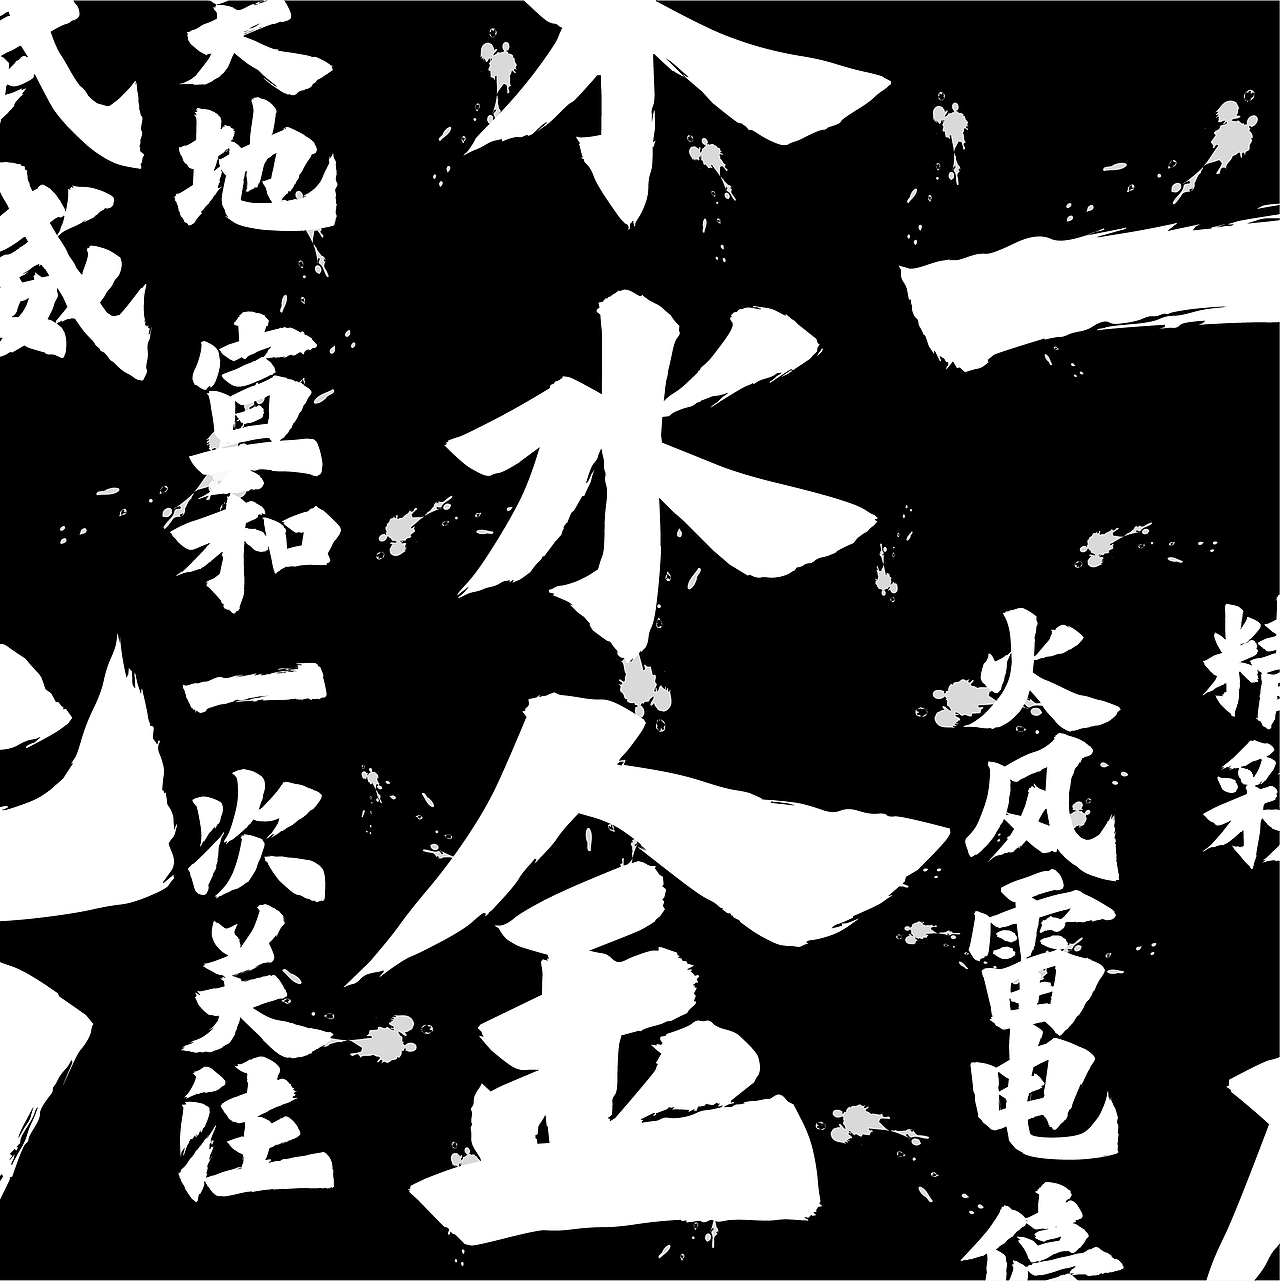 武威
天地
宣和
一
次关注
木水金
一
火风雷电
停
精彩